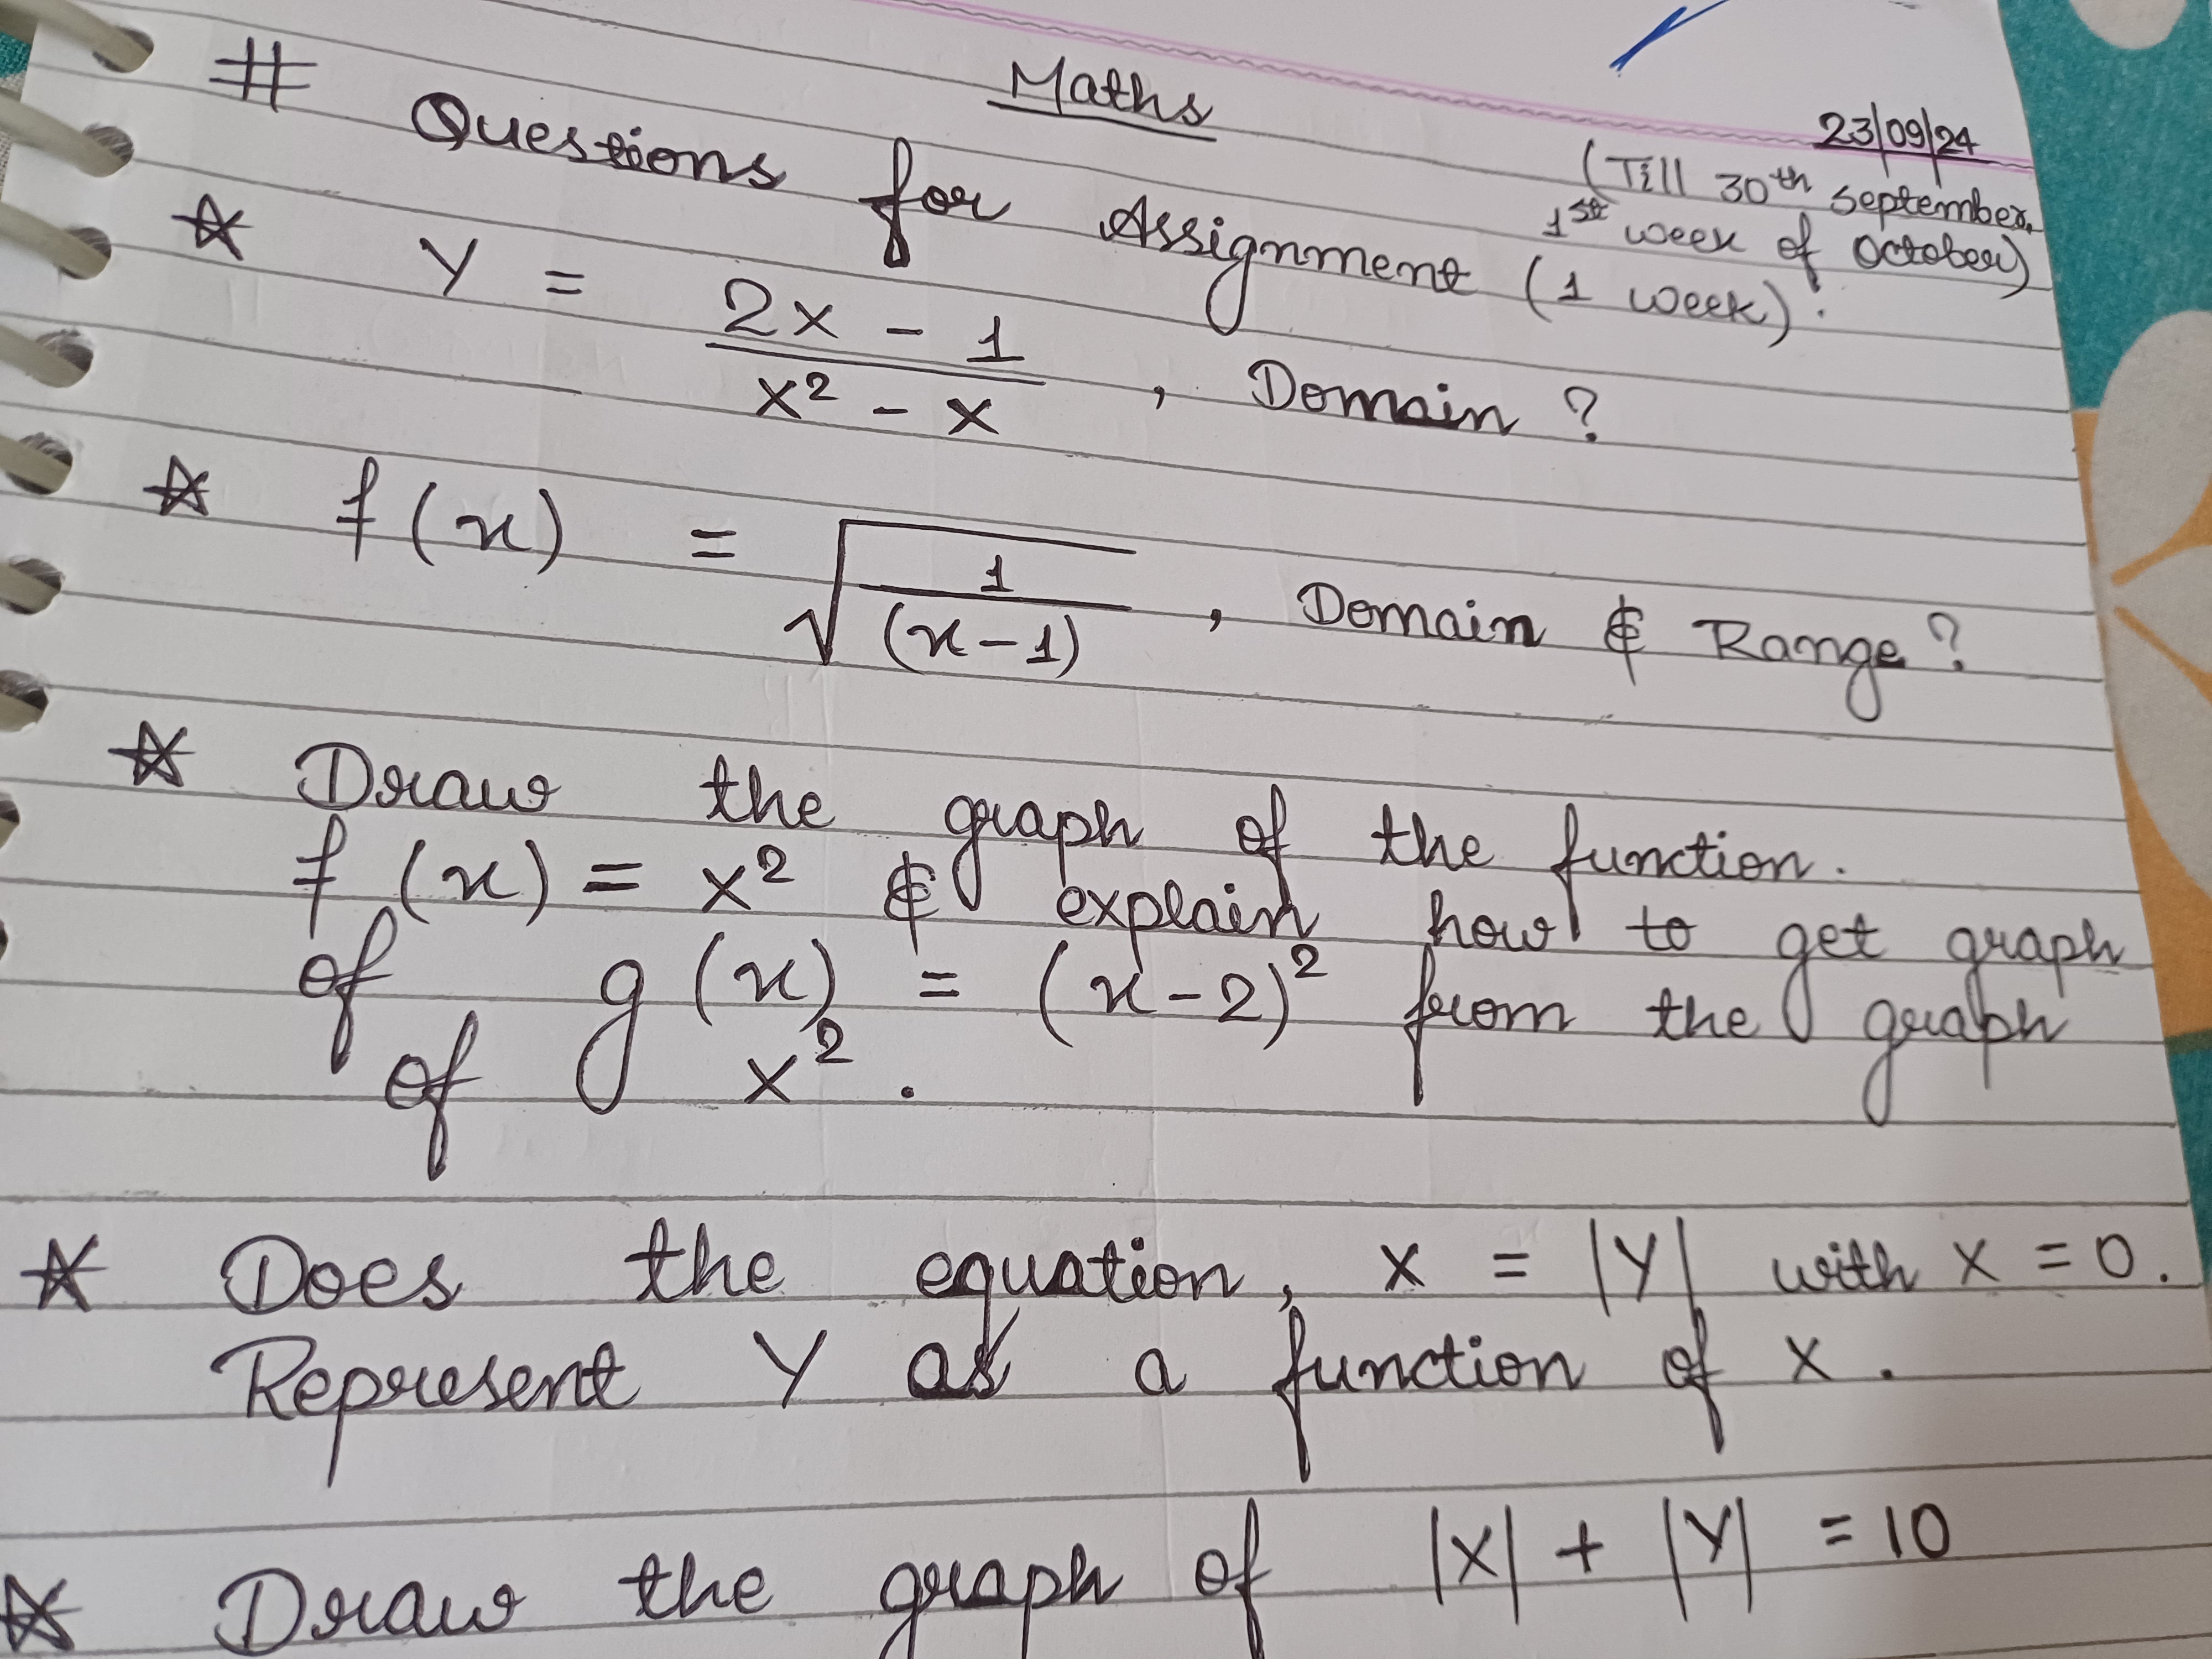 Maths
23/09/24
# Questions for Assignment (1 week):
(Till 30th September,
1st week of October)
☆ Y = 2x - 1 / x² - x , Domain ?
☆ f(x) = √1/(x-1) , Domain & Range ?
☆ Draw the graph of the function.
f(x) = x² & explain how to get graph
of g(x) = (x-2)² from the graph
of x² .
☆ Does the equation, x = |Y| with x = 0.
Represent Y as a function of x .
☆ Draw the graph of |X| + |Y| = 10